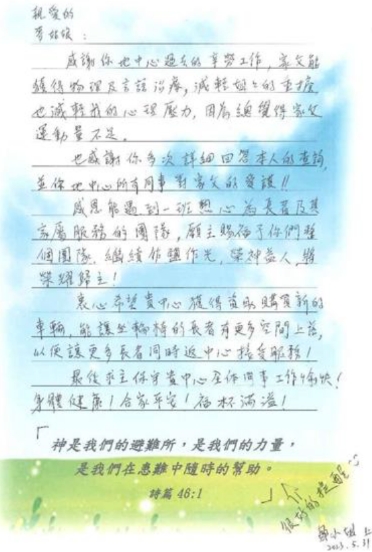 親愛的
感謝你地中心過去的辛勞工作,家父能
獲得物理及言語治療,減輕
也減輕我的心理壓力,因為總覺得家父
運動量不足。
也感謝你多次詳細回答本人的查詢,
並你地中心所有同事對家父的愛護!!
感恩能遇到一班熱心為長者及其
家屬服務的團隊,願主賜福予你們整
個團隊,繼續作鹽作光,榮神益人,
榮耀歸主!
衷心希望貴中心獲得資助購買新的
車輛,能讓坐輪椅的長者有更多空間上落,
以便讓更多長者同時返中心接受服務!
最後求主保守貴中心全体同事工作愉快!
身體健康!合家平安!福杯滿溢!
「神是我們的避難所,是我們的力量,
是我們在患難中隨時的幫助。
詩篇 46:1 」
很好的提醒
小姐 上
2023.5.19